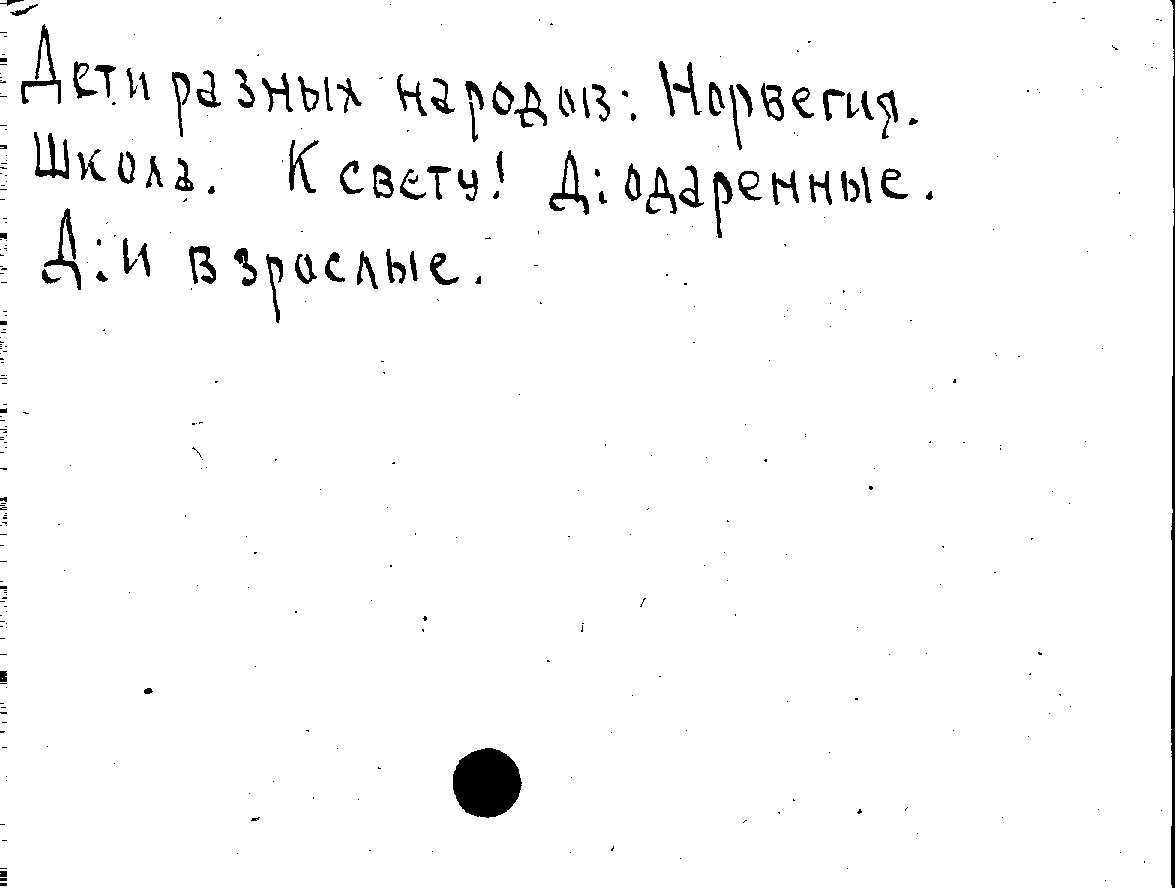 Дети разных народов: Норвегия.
Школа. К свету! Д: одаренные.
Д: и взрослые.